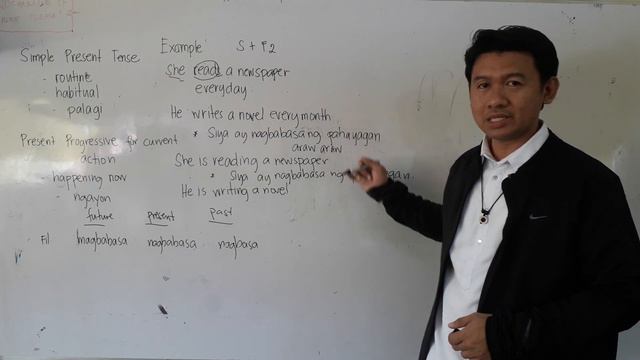 Simple Present Tense Example S + F2
- routine She reads a newspaper
- habitual everyday
- palagi He writes a novel every month
Present Progressive for current * Siya ay nagbabasa ng pahayagan
action araw araw
She is reading a newspaper
- happening now * Siya ay nagbabasa ng
- ngayon He is writing a novel
future present past
Fil magbabasa nagbabasa nagbasa